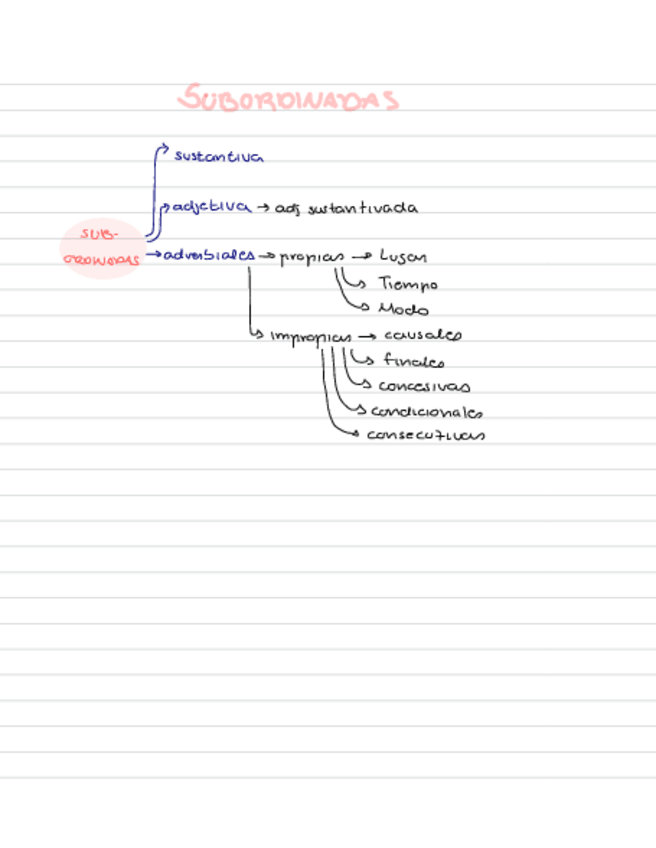 SUBORDINADAS
sustantiva
adjetiva → adj sustantivada
SUB-
ORDINADAS
→ adverbiales → propias → Lugar
Tiempo
Modo
impropias → causales
finales
concesivas
condicionales
consecutivas